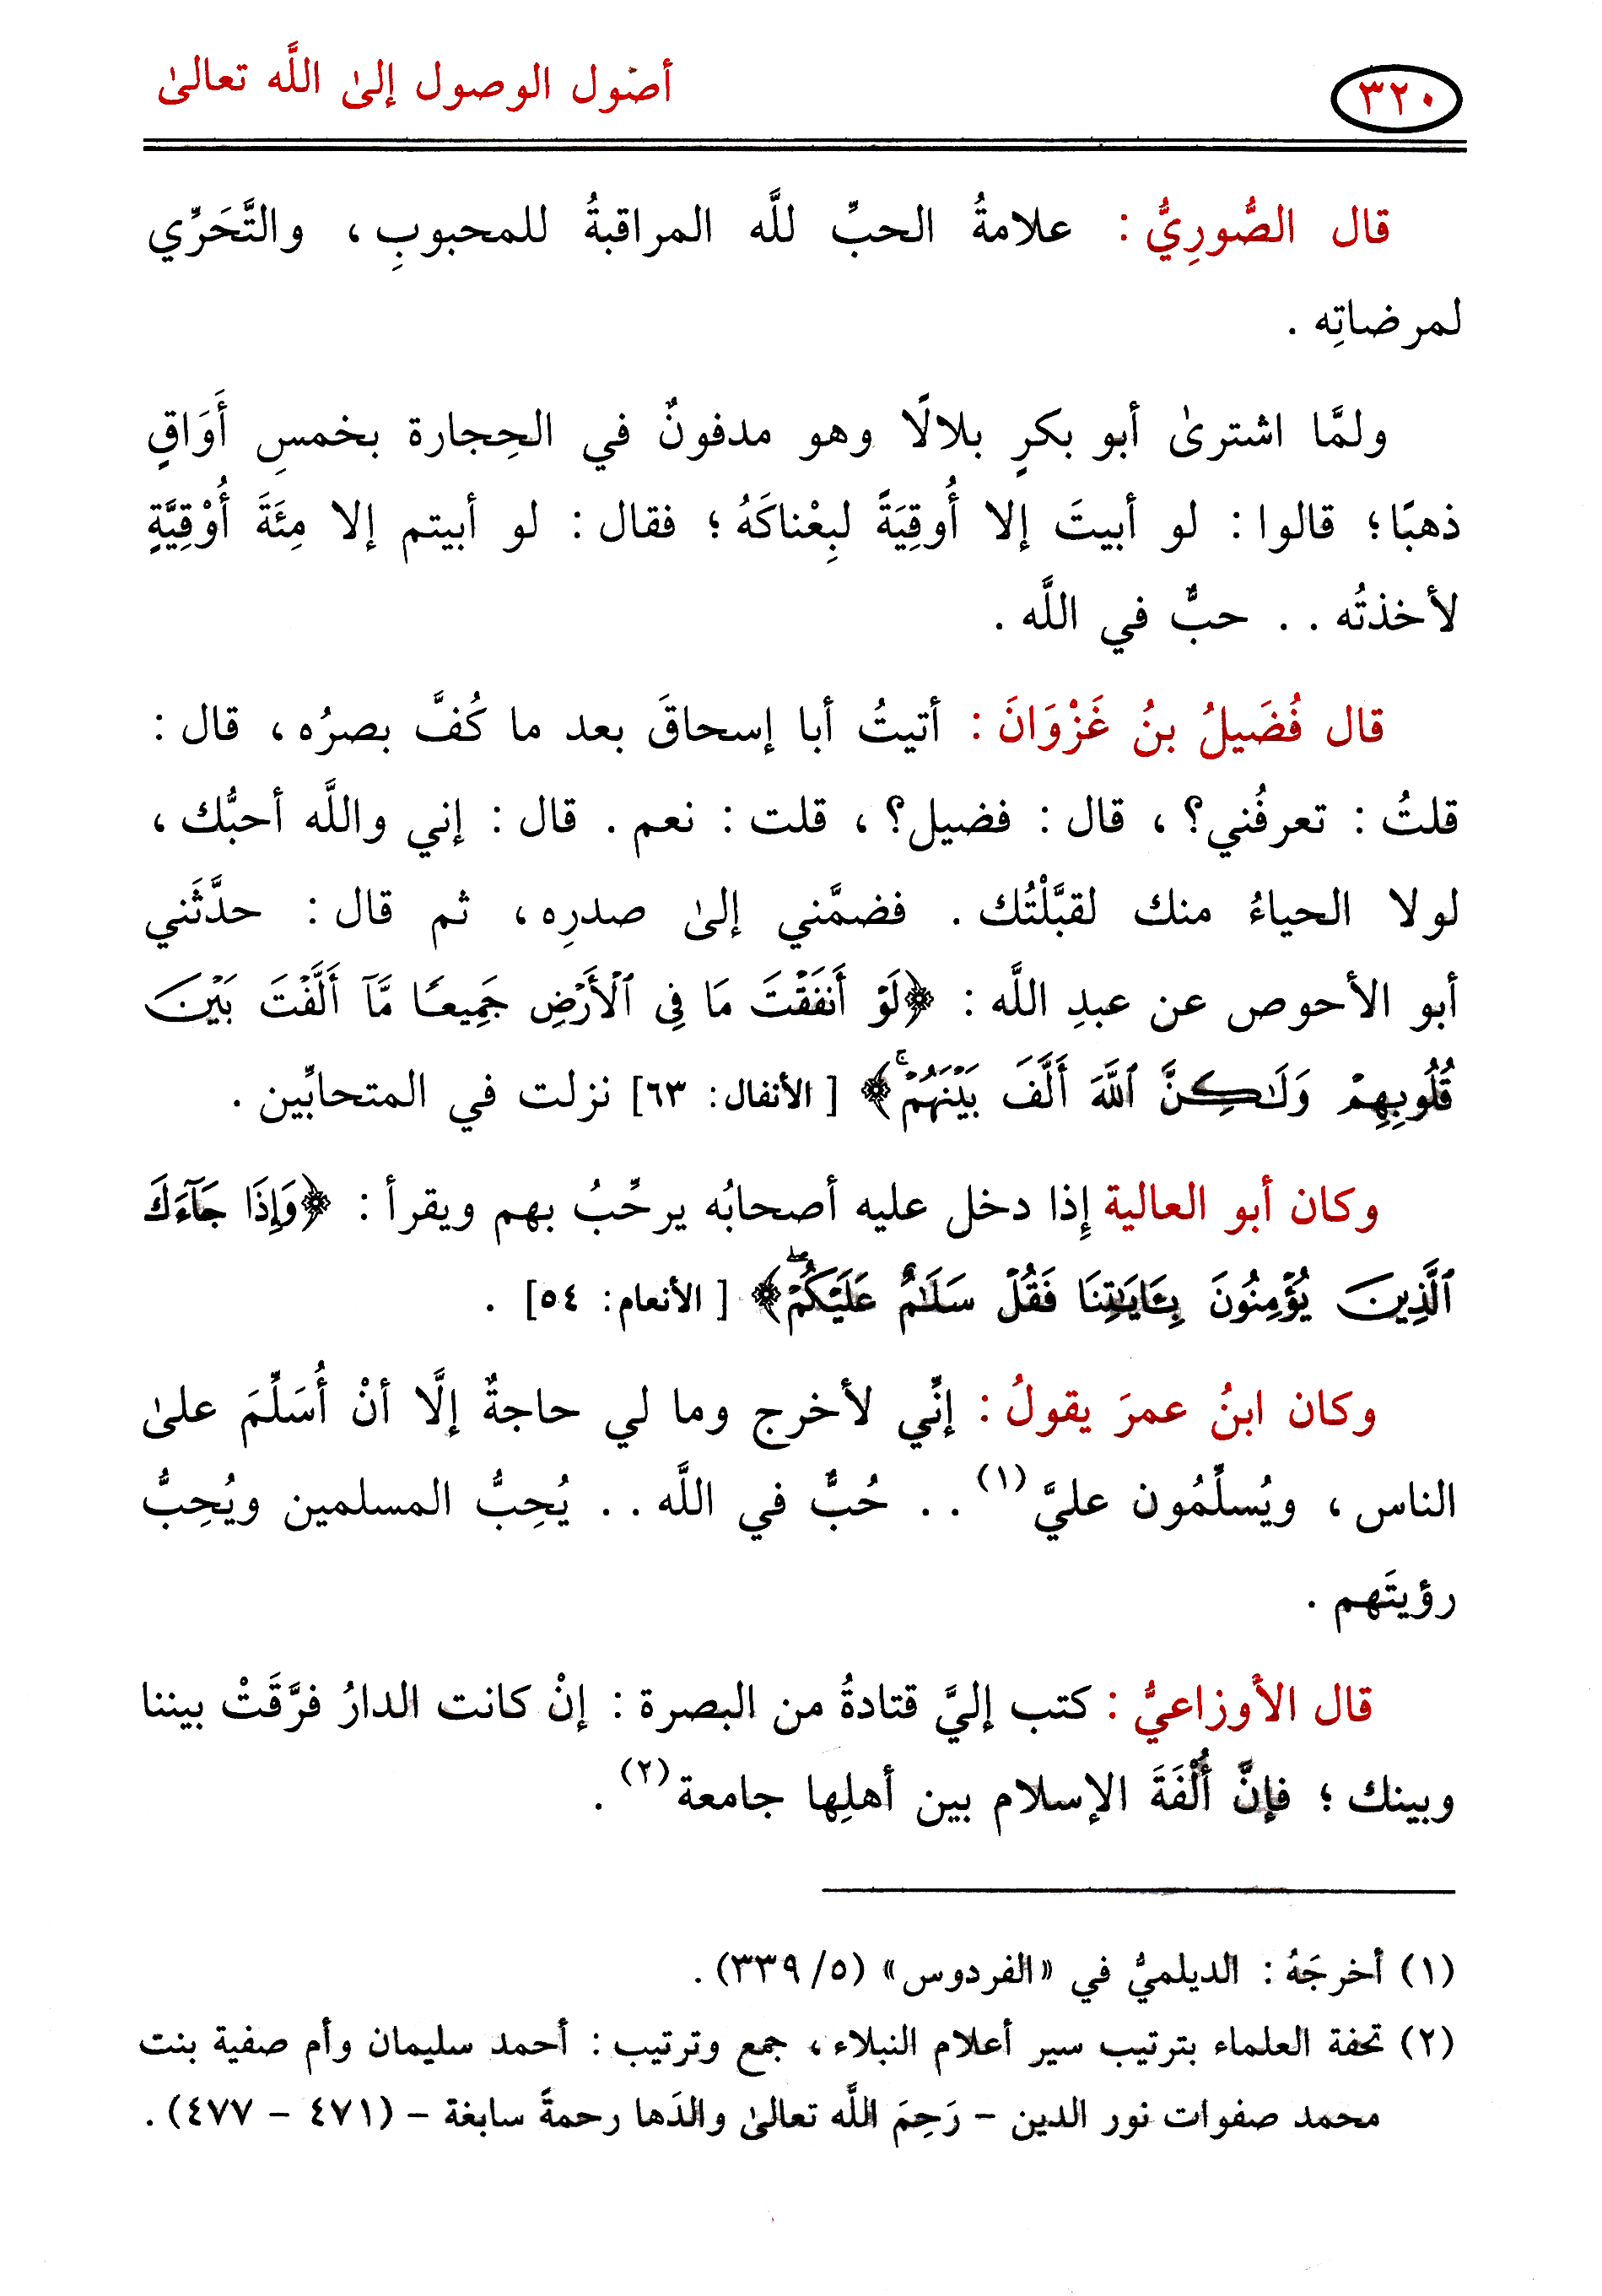 ٣٢٠
أصول الوصول إلىٰ اللَّه تعالىٰ
قال الصُّورِيُّ : علامةُ الحبِّ للَّه المراقبةُ للمحبوبِ ، والتَّحَرِّي
لمرضاتِه .
ولمَّا اشترىٰ أبو بكرٍ بلالًا وهو مدفونٌ في الحِجارة بخمسِ أَوَاقٍ
ذهبًا؛ قالوا : لو أبيتَ إلا أُوقِيَةً لبِعْناكَهُ ؛ فقال : لو أبيتم إلا مِئَةَ أُوْقِيَّةٍ
لأخذتُه . . حبٌّ في اللَّه .
قال فُضَيلُ بنُ غَزْوَانَ : أتيتُ أبا إسحاقَ بعد ما كُفَّ بصرُه ، قال :
قلتُ : تعرفُني؟ ، قال : فضيل؟ ، قلت : نعم . قال : إني واللَّه أحبُّك ،
لولا الحياءُ منك لقبَّلْتُك . فضمَّني إلىٰ صدرِه ، ثم قال : حدَّثَني
أبو الأحوص عن عبدِ اللَّه : ﴿لَوۡ أَنفَقۡتَ مَا فِي ٱلۡأَرۡضِ جَمِيعٗا مَّآ أَلَّفۡتَ بَيۡنَ
قُلُوبِهِمۡ وَلَٰكِنَّ ٱللَّهَ أَلَّفَ بَيۡنَهُمۡۚ﴾ [ الأنفال: ٦٣] نزلت في المتحابِّين .
وكان أبو العالية إِذا دخل عليه أصحابُه يرحِّبُ بهم ويقرأ : ﴿وَإِذَا جَآءَكَ
ٱلَّذِينَ يُؤۡمِنُونَ بِـَٔايَٰتِنَا فَقُلۡ سَلَٰمٌ عَلَيۡكُمۡۖ﴾ [ الأنعام: ٥٤] .
وكان ابنُ عمرَ يقولُ : إنِّي لأخرج وما لي حاجةٌ إلَّا أنْ أُسَلِّمَ علىٰ
الناس ، ويُسلِّمُون عليَّ(١) . . حُبٌّ في اللَّه . . يُحِبُّ المسلمين ويُحِبُّ
رؤيتَهم .
قال الأوزاعيُّ : كتب إليَّ قتادةُ من البصرة : إنْ كانت الدارُ فرَّقَتْ بيننا
وبينك ؛ فإنَّ أُلْفَةَ الإسلام بين أهلِها جامعة(٢) .
(١) أخرجَهُ : الديلميُّ في «الفردوس» (٥/ ٣٣٩) .
(٢) تحفة العلماء بترتيب سير أعلام النبلاء ، جمع وترتيب : أحمد سليمان وأم صفية بنت
محمد صفوات نور الدين – رَحِمَ اللَّه تعالىٰ والدَها رحمةً سابغة – (٤٧١ – ٤٧٧) .